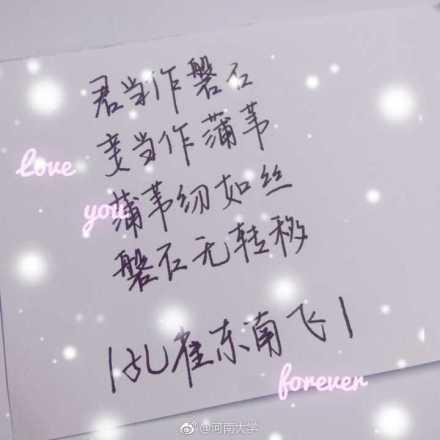 君当作磐石
妾当作蒲苇
love
蒲苇纫如丝
you
磐石无转移
|孔雀东南飞|
forever
@河南大学